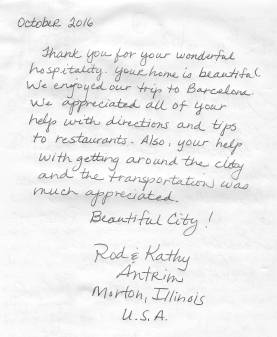 October 2016
Thank you for your wonderful
hospitality. Your home is beautiful
We enjoyed our trip to Barcelona.
We appreciated all of your
help with directions and tips
to restaurants. Also, your help
with getting around the city
and the transportation was
much appreciated.
Beautiful City!
Rod & Kathy
Antrim
Morton, Illinois
U.S.A.